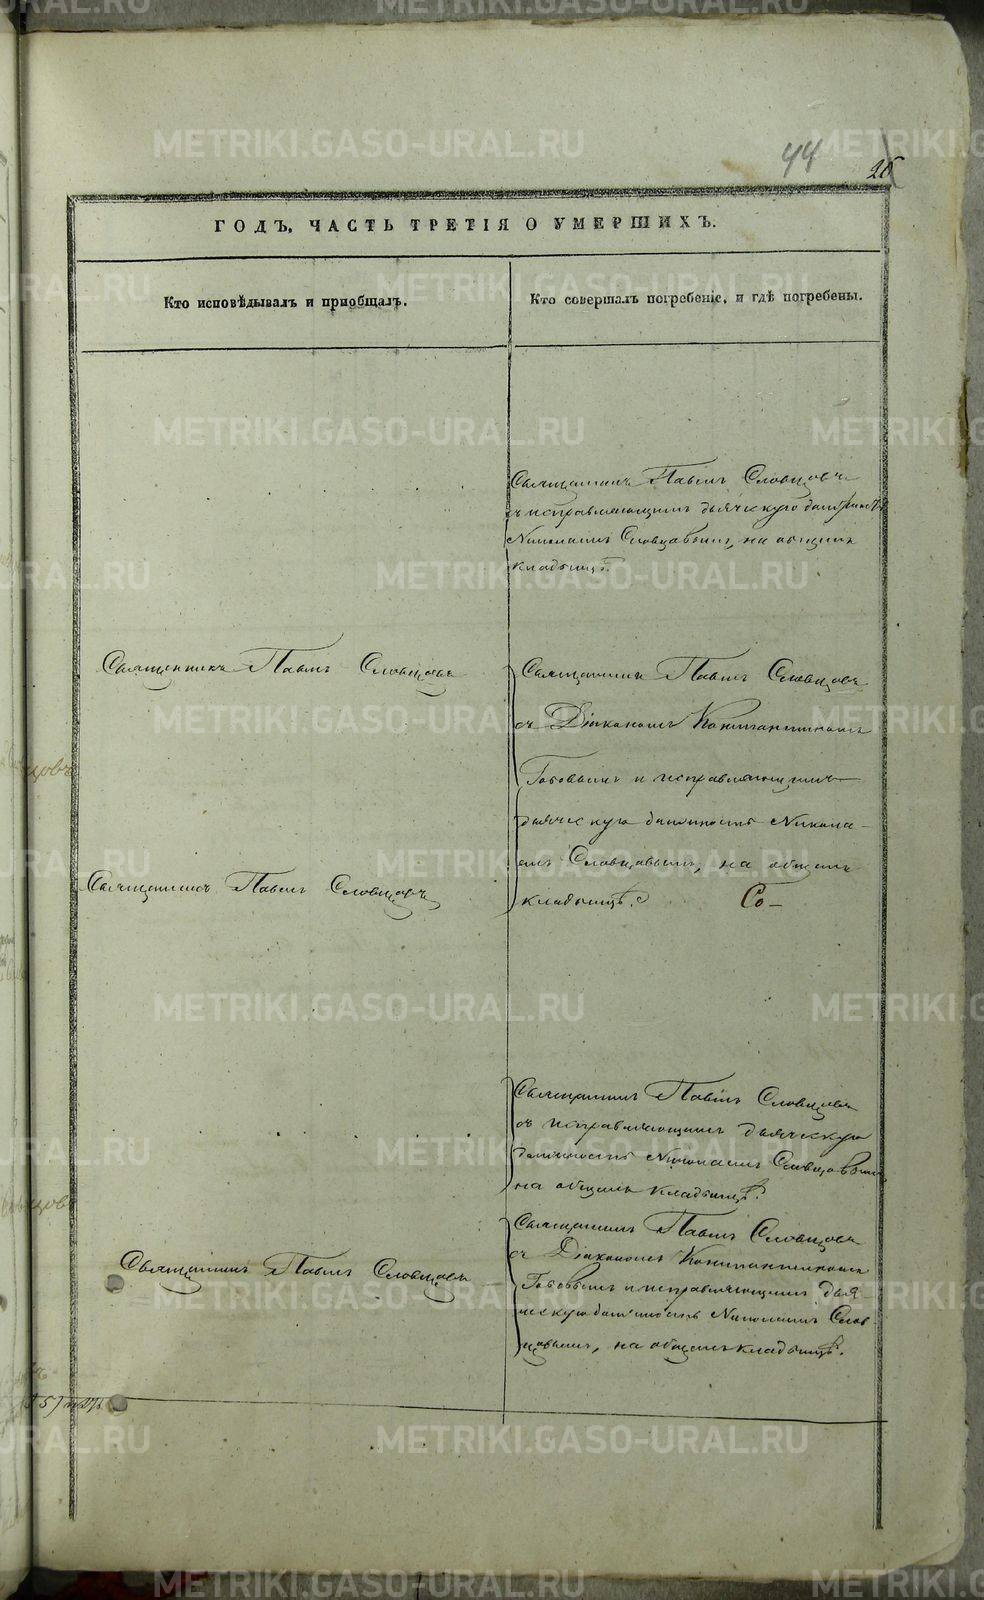 44
26
ГОДЪ, ЧАСТЬ ТРЕТІЯ О УМЕРШИХЪ.
Кто исповѣдывалъ и пріобщалъ.
Кто совершалъ погребеніе, и гдѣ погребены.
Священникъ Павелъ Словцовъ
съ исправляющимъ дьяческую должность
Николаемъ Словцовымъ, на общемъ
кладбищѣ.
Священникъ Павелъ Словцовъ
Священникъ Павелъ Словцовъ
съ Діакономъ Константиномъ
и исправляющимъ
дьяческую должность Никола-
емъ Словцовымъ, на общемъ
кладбищѣ.
Со-
Священникъ Павелъ Словцовъ
Священникъ Павелъ Словцовъ
съ исправляющимъ дьяческую
должность Николаемъ Словцовымъ
на общемъ кладбищѣ.
Священникъ Павелъ Словцовъ
съ Діакономъ Константиномъ
и исправляющимъ дья
ческую должность Николаемъ Слов
цовымъ, на общемъ кладбищѣ.
Священникъ Павелъ Словцовъ
METRIKI.GASO-URAL.RU